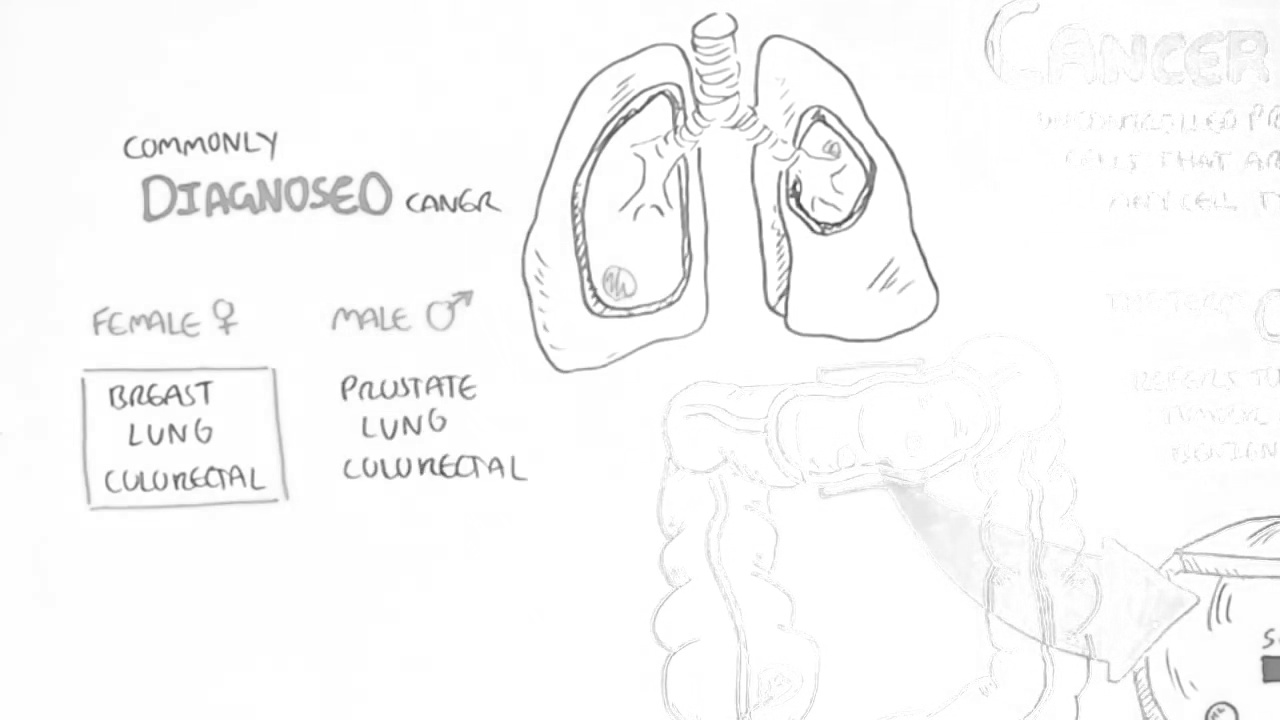 COMMONLY
DIAGNOSED CANER
FEMALE ♀
MALE ♂
BREAST
LUNG
COLORECTAL
PROSTATE
LUNG
COLORECTAL
CANCER
UNCONTROLLED PR
CELLS THAT AR
ANY CELL T
THE TERM C
REFERS TO
TUMOR
BENIGN
S